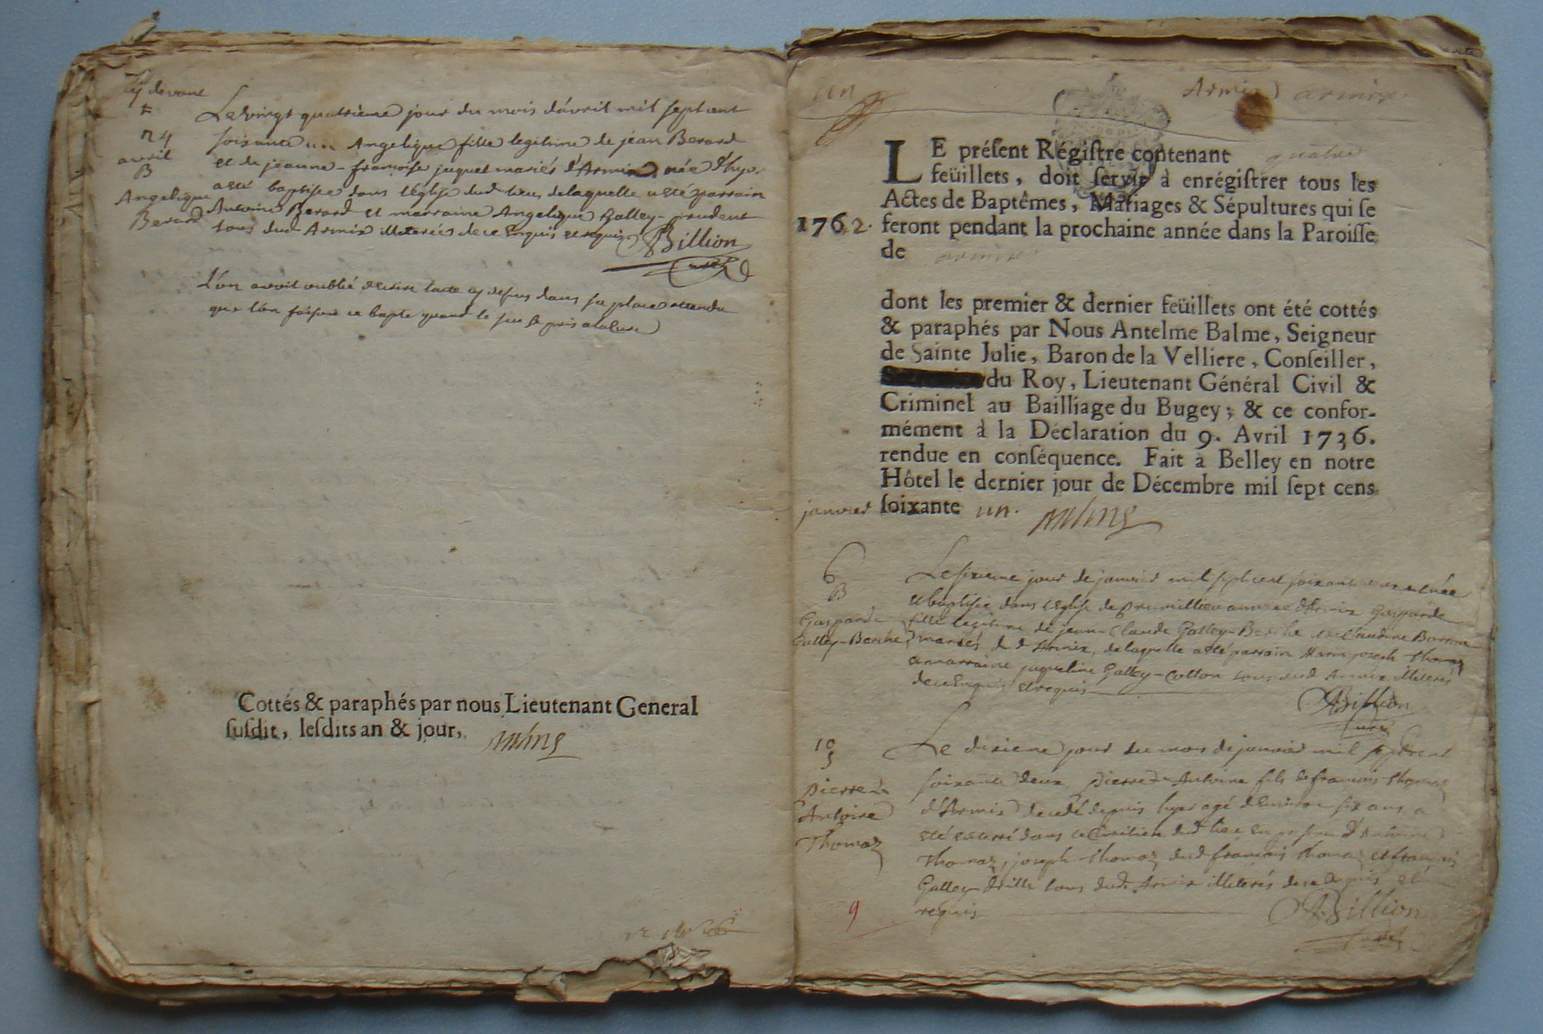 Cy devant
24
avril
B
Angelique
Berard
Le vingt quatrieme jour du mois d'avril mil sept cent
soixante un Angelique fille legitime de jean Berard
et de jeanne-francoise juquet mariés d'Armix née d'hyer
a esté baptisee dans l'Eglise dud. lieu, de laquelle a esté parrain
Antoine Berard et marraine Angelique Galley-prudent
tous dud. Armix illiterés de ce enquis et requis Billion
curé
L'on avoit oublié decrire lacte cy dessus dans sa place attendu
que l'on faisoit ce bapte quand le feu se prit
Cottés & paraphés par nous Lieutenant General
susdit, lesdits an & jour,
un
Armix armix
LE préſent Régiſtre contenant quatre
feüillets, doit ſervir à enrégiſtrer tous les
Actes de Baptêmes, Mariages & Sépultures qui ſe
1762. feront pendant la prochaine année dans la Paroiſſe
de armix
dont les premier & dernier feüillets ont été cottés
& paraphés par Nous Antelme Balme, Seigneur
de Sainte Julie, Baron de la Velliere, Conſeiller,
du Roy, Lieutenant Général Civil &
Criminel au Bailliage du Bugey; & ce confor-
mément à la Déclaration du 9. Avril 1736.
rendue en conſéquence. Fait à Belley en notre
Hôtel le dernier jour de Décembre mil ſept cens
ſoixante un.
janvier
6
B
Gasparde
Galley-Berche
Le sixieme jour de janvier mil sept cent soixante deux est née
et baptisée dans l'Eglise de annexe d'Armix Gasparde
fille legitime de jean-Claude Galley-Berche et Claudine
mariés dud. Armix, de laquelle a esté parrain joseph thomaz
et marraine jaqueline Galley-Cotton tous dud. Armix illiterés
de ce enquis et requis
Billion
curé
10
S
pierre
Antoine
Thomaz
Le dixieme jour du mois de janvier mil sept cent
soixante deux pierre Antoine fils de francois thomaz
d'Armix decedé depuis hyer agé d'environ six ans a
esté enterré dans le Cimitiere dud. lieu en presence d'Antoine
Thomaz, joseph thomaz dud. francois thomaz et francois
Galley tous dud. Armix illiterés de ce enquis et
requis
Billion
curé
9